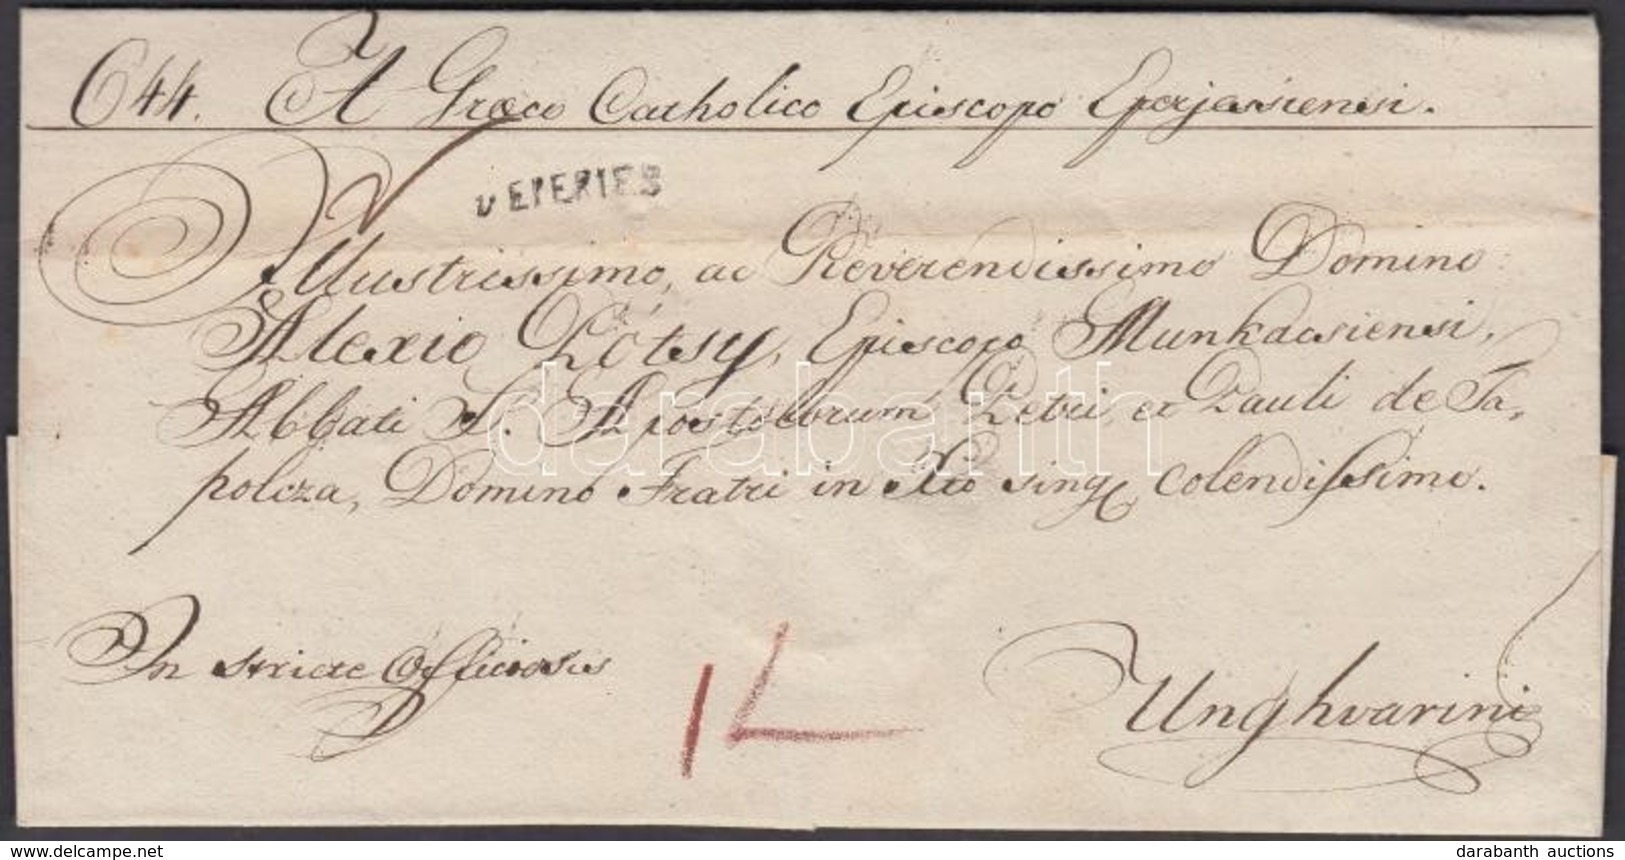 644. A Græco Catholico Episcopo Eperjessiensi.
v EPERIES
Illustrissimo, ac Reverendissimo Domino
Alexio Pótsy, Episcopo Munkacsiensi,
Abbati S. Apostolorum Petri, et Pauli de Ta,
polcza, Domino Fratri in Xto sing colendissimo.
In stricte Officiosis
Unghvarini
darabanth
www.delcampe.net
darabanth auctions